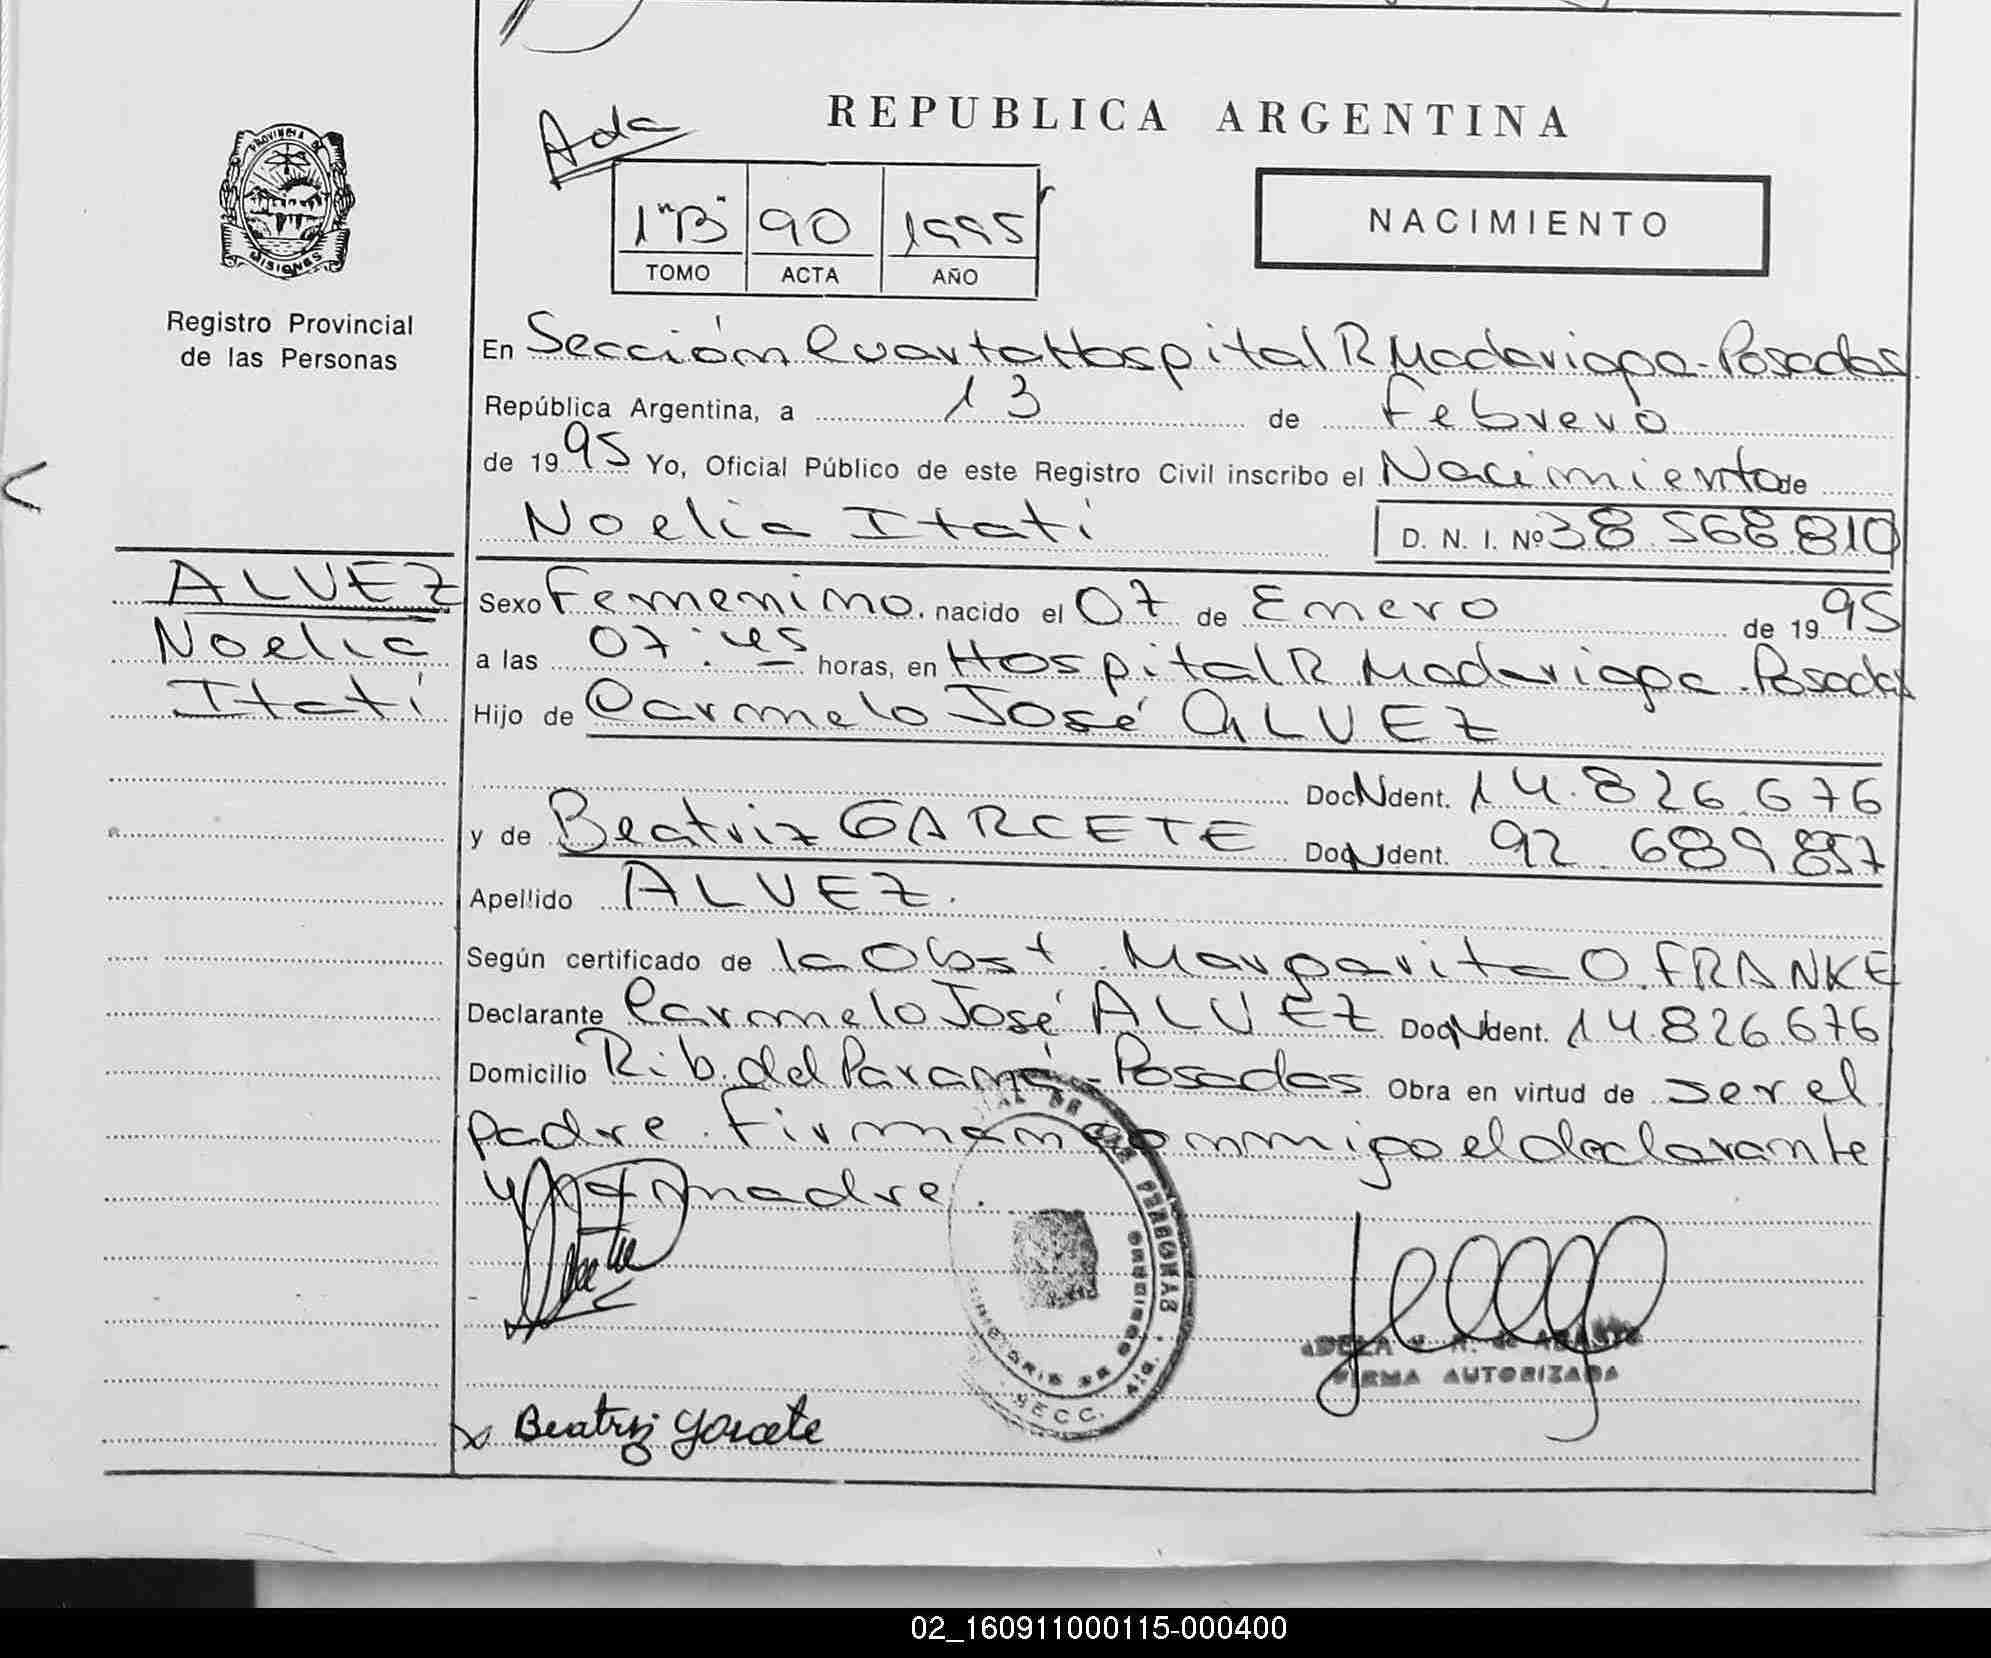 REPUBLICA ARGENTINA
Ada
1 "B" 90 1995
TOMO ACTA AÑO
NACIMIENTO
PROVINCIA DE
MISIONES
Registro Provincial
de las Personas
En Sección Cuarta Hospital R Madariaga - Posadas
República Argentina, a 13 de Febrero
de 1995 Yo, Oficial Público de este Registro Civil inscribo el Nacimiento de
Noelia Itatí D. N. I. Nº 38 568 810
ALVEZ
Noelia
Itatí
Sexo Femenino. nacido el 07 de Enero de 1995
a las 07:45 horas, en Hospital R Madariaga - Posadas
Hijo de Carmelo José ALVEZ
Doc N Ident. 14.826.676
y de Beatriz GARCETE Doc N Ident. 92 689 857
Apellido ALVEZ.
Según certificado de la Obst. Margarita O. FRANKE
Declarante Carmelo José ALVEZ Doc N Ident. 14.826.676
Domicilio Rib. del Paraná - Posadas Obra en virtud de ser el
padre. Firman conmigo el declarante
y la madre.
DE LAS PERSONAS
SECC.
FIRMA AUTORIZADA
x Beatriz Garcete
02_160911000115-000400